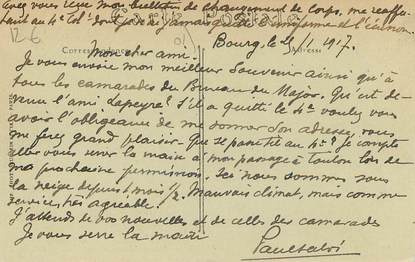 Avez vous reçu mon bulletin de changement de corps, me réaffec-
tant au 4e Col.
12-6
CARTE POSTALE
Correspondance
Adresse
Bourg, le 1917.
Mon cher ami.
Je vous envoie mon meilleur souvenir ainsi qu'à
tous les camarades du Bureau du Major. Qu'est de-
venu l'ami Lapeyre? S'il a quitté le 4e voulez vous
avoir l'obligeance de me donner son adresse, vous
me ferez grand plaisir. Que se passe t'il au 4e? Je compte
aller vous serrer la main à mon passage à Toulon lors de
ma prochaine permission. Ici nous sommes sous
la neige depuis 1 mois 1/2. Mauvais climat, mais comme
service très agréable.
J'attends de vos nouvelles et de celles des camarades
Je vous serre la main